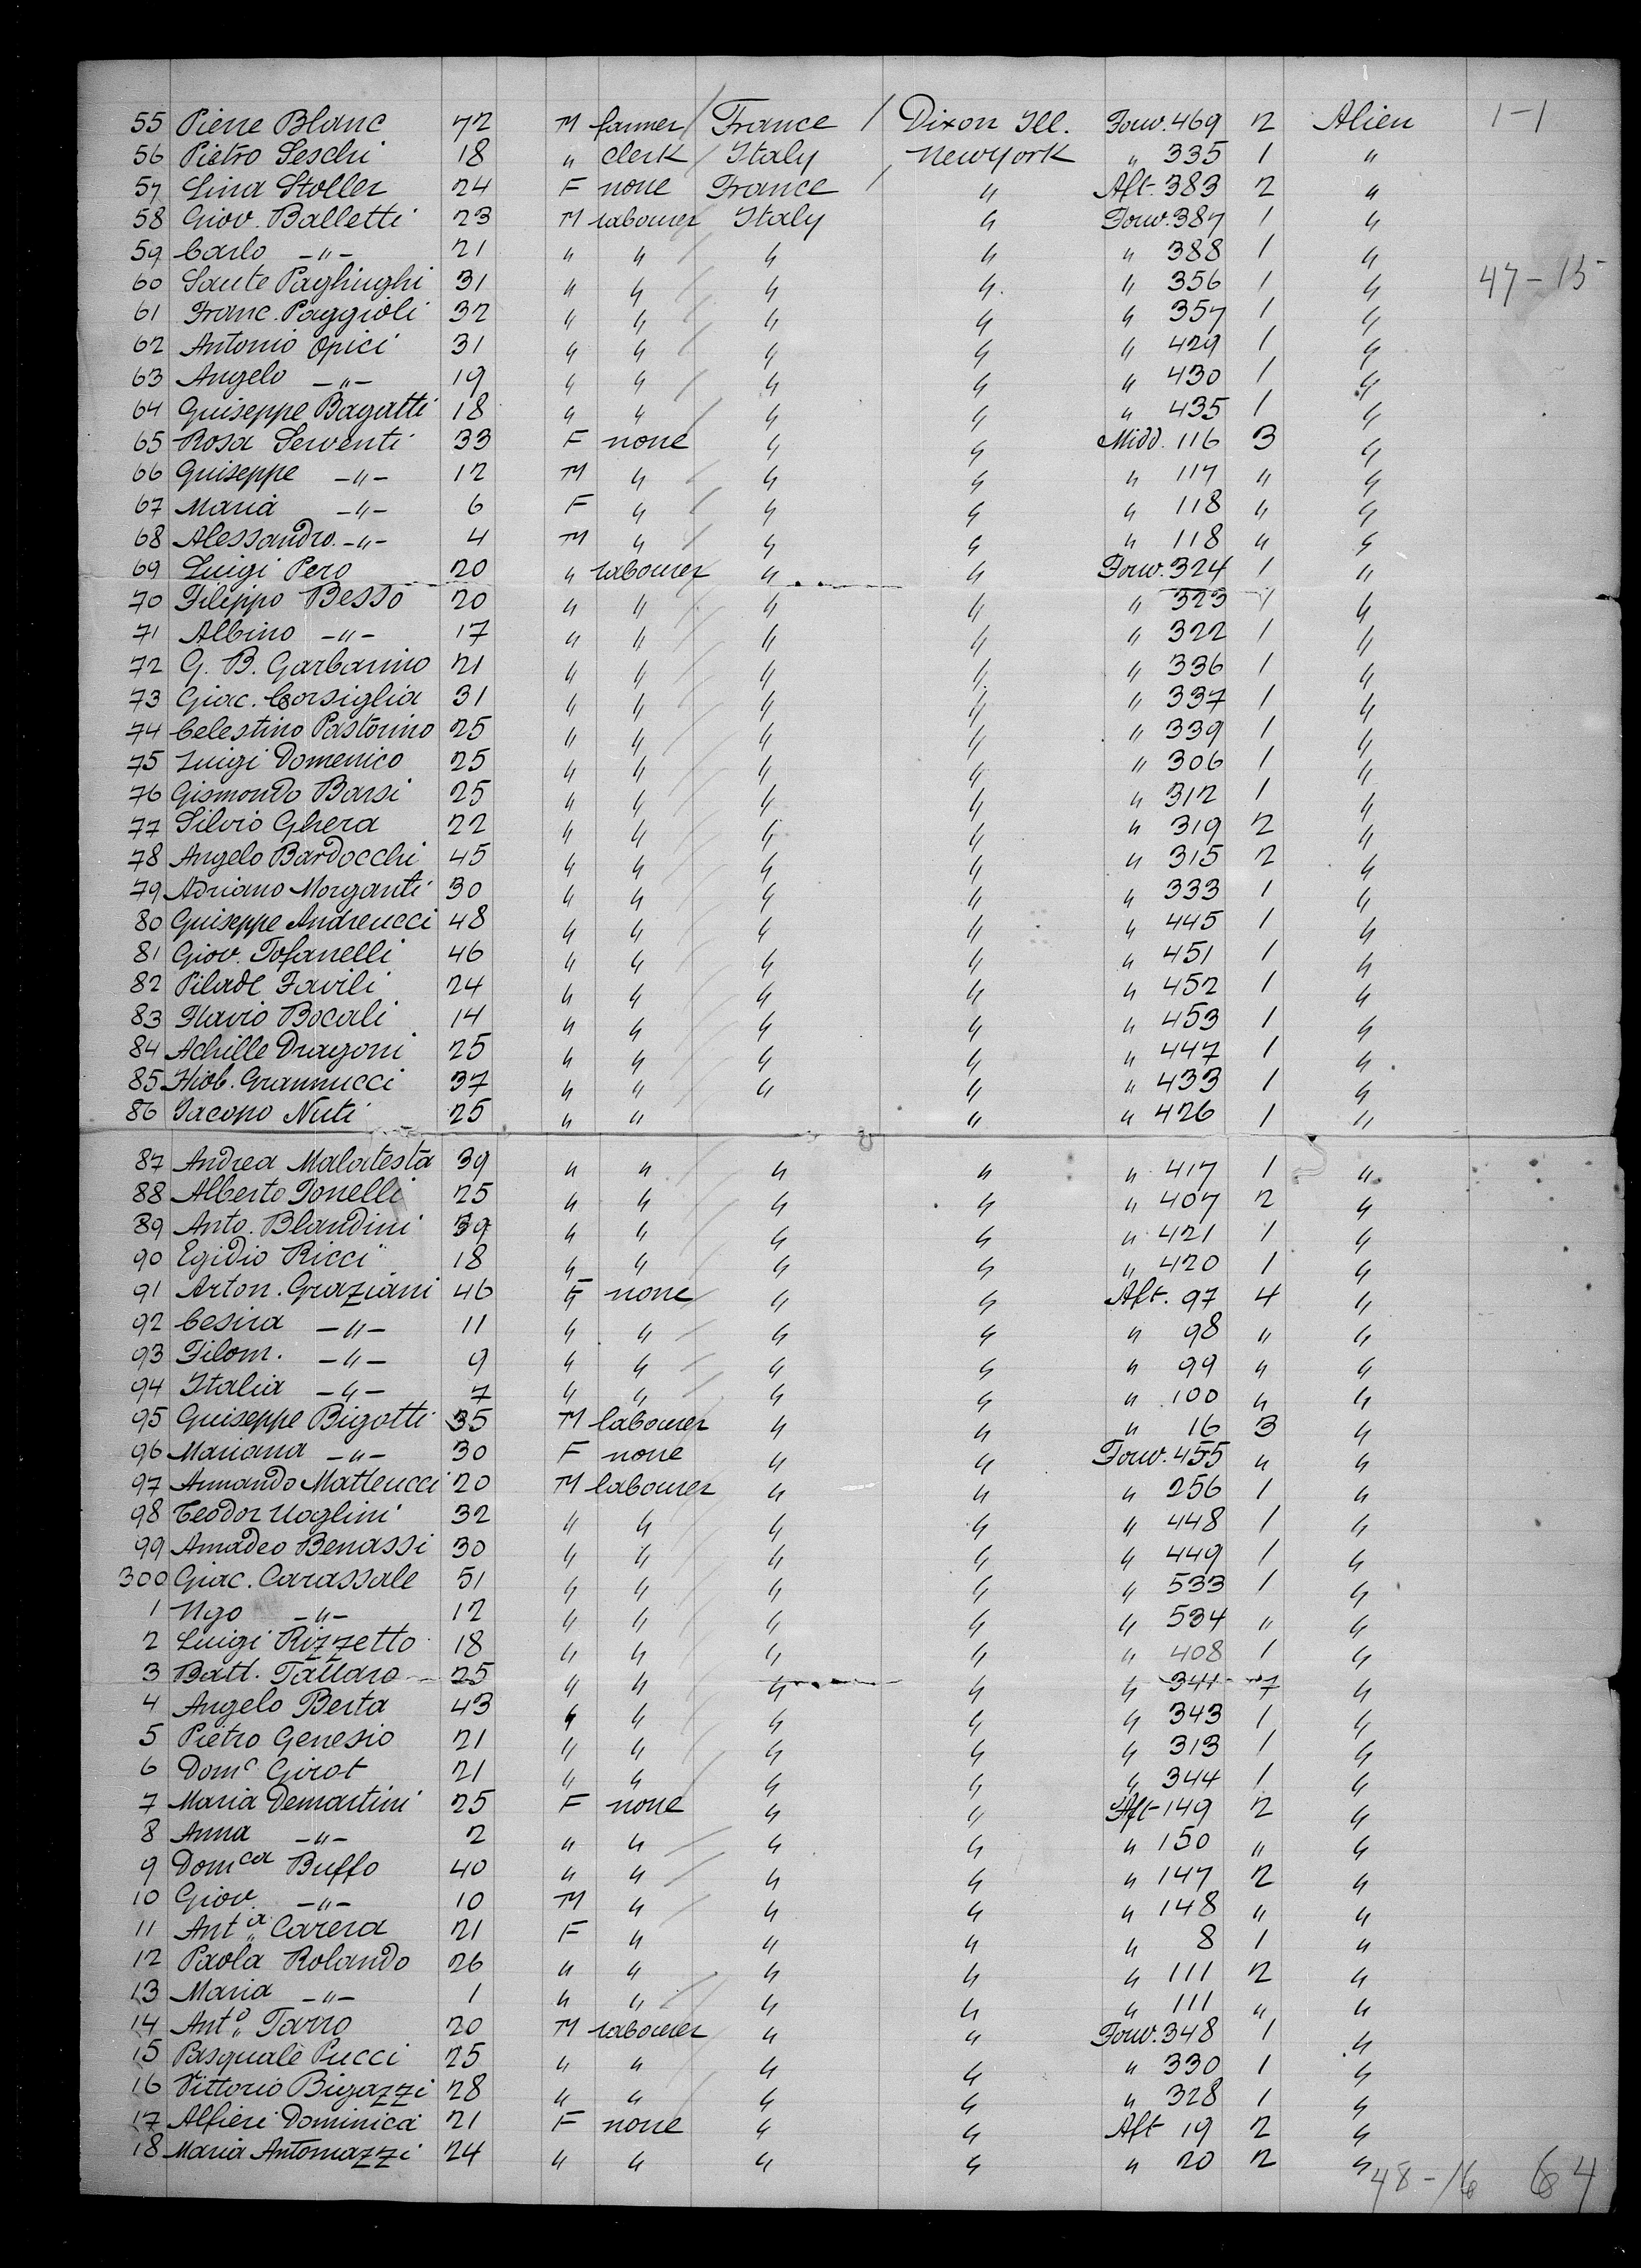 55 Piere Blanc 72 M farmer / France / Dixon Ill. Forw. 469 2 Alien 1-1
56 Pietro Seschi 18 " clerk / Italy New York " 335 1 "
57 Lina Stoller 24 F none France / " Aft. 383 2 "
58 Giov. Balletti 23 M labourer Italy " Forw. 387 1 "
59 Carlo -"- 21 " " / " " " 388 1 "
60 Sante Paghinghi 31 " " / " " " 356 1 " 47-15
61 Franc. Paggioli 32 " " / " " " 357 1 "
62 Antonio Opici 31 " " / " " " 429 1 "
63 Angelo -"- 19 " " / " " " 430 1 "
64 Guiseppe Bagatti 18 " " / " " " 435 1 "
65 Rosa Serventi 33 F none " " Midd. 116 3 "
66 Guiseppe -"- 12 M " / " " " 117 " "
67 Maria -"- 6 F " / " " " 118 " "
68 Alessandro -"- 4 M " / " " " 118 " "
69 Luigi Pero 20 " labourer " " Forw. 324 1 "
70 Filippo Besso 20 " " / " " " 323 1 "
71 Albino -"- 17 " " / " " " 322 1 "
72 G. B. Garbarino 21 " " / " " " 336 1 "
73 Giac. Corsiglia 31 " " / " " " 337 1 "
74 Celestino Pastorino 25 " " / " " " 339 1 "
75 Luigi Domenico 25 " " / " " " 306 1 "
76 Gismondo Barsi 25 " " / " " " 312 1 "
77 Silvio Ghera 22 " " / " " " 319 2 "
78 Angelo Bardocchi 45 " " / " " " 315 2 "
79 Adriano Morganti 30 " " / " " " 333 1 "
80 Guiseppe Andreucci 48 " " / " " " 445 1 "
81 Giov. Tofanelli 46 " " / " " " 451 1 "
82 Pilade Favili 24 " " / " " " 452 1 "
83 Flavio Bocali 14 " " / " " " 453 1 "
84 Achille Dragoni 25 " " / " " " 447 1 "
85 Hiob. Grannucci 37 " " / " " " 433 1 "
86 Iacopo Nuti 25 " " " " 426 1 "
87 Andrea Malatesta 39 " " / " " " 417 1 "
88 Alberto Donelli 25 " " / " " " 407 2 "
89 Anto. Blandini 39 " " / " " " 421 1 "
90 Egidio Ricci 18 " " / " " " 420 1 "
91 Arton. Graziani 46 F none " " Aft. 97 4 "
92 Cesira -"- 11 " " / " " " 98 " "
93 Filom. -"- 9 " " / " " " 99 " "
94 Italia -"- 7 " " / " " " 100 " "
95 Guiseppe Bigotti 35 M labourer " " " 16 3 "
96 Mariana -"- 30 F none " " Forw. 455 " "
97 Armando Matteucci 20 M labourer " " " 256 1 "
98 Teodor Uoglini 32 " " / " " " 448 1 "
99 Amadeo Benassi 30 " " / " " " 449 1 "
300 Giac. Carassale 51 " " / " " " 533 1 "
1 Ugo -"- 12 " " / " " " 534 " "
2 Luigi Rizzetto 18 " " / " " " 408 1 "
3 Batt. Tallaro 25 " " / " " " 341 "
4 Angelo Berta 43 " " / " " " 343 1 "
5 Pietro Genesio 21 " " / " " " 313 1 "
6 Domc Girot 21 " " / " " " 344 1 "
7 Maria Demartini 25 F none " " Aft 149 2 "
8 Anna -"- 2 " " / " " " 150 " "
9 Domca Buffo 40 " " / " " " 147 2 "
10 Giov. -"- 10 M " / " " " 148 " "
11 Anta Carera 21 F " " " " 8 1 "
12 Paola Rolando 26 " " / " " " 111 2 "
13 Maria -"- 1 " " / " " " 111 " "
14 Anto Tarro 20 M labourer " " Forw. 348 1 "
15 Pasquale Pucci 25 " " / " " " 330 1 "
16 Vittorio Bigazzi 28 " " / " " " 328 1 "
17 Alfieri Dominica 21 F none " " Aft 19 2 "
18 Maria Antomazzi 24 " " " " " 20 2 "
48-16 64